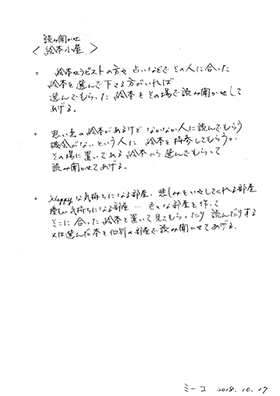 読み聞かせ
< 絵本小屋 >
・ 絵本セラピストの方や 占いなどで その人に合った
絵本を 選んで下さる方がいれば
選んでもらった 絵本を その場で 読み聞かせして
あげる。
・ 思い出の絵本があるけど なかなか人に 読んでもらう
機会がない という人に 絵本を 持参してもらうか
その場に 置いてある 絵本から 選んでもらって
読み聞かせてあげる。
・ Happyな気持ちになる部屋、悲しみをいやしてくれる部屋
優しい気持ちになる部屋 … 色々な部屋を 作って
そこに 合った 絵本を 置いて 見てもらったり 読んだりする
又は 選んだ本を 個別の部屋で 読み聞かせてあげる。
ミーコ 2018.10.17